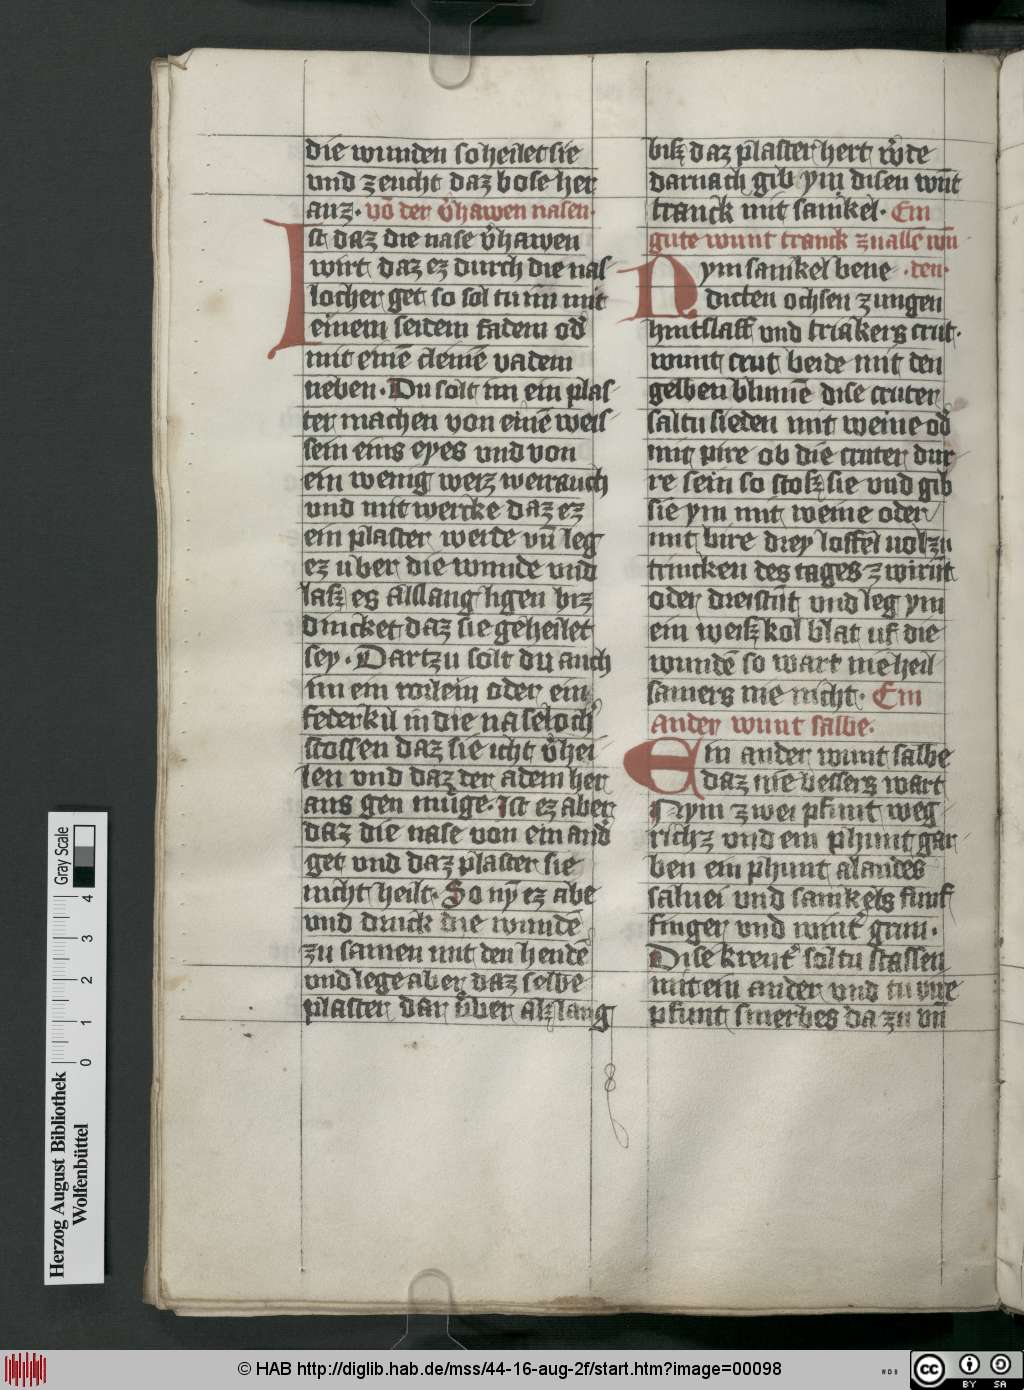 die wunden so heilet sie
vnd zeucht daz bose her
auz. võ der v̓hawen nasen.
Ist daz die nase v̓hawen
wirt daz ez durch die nas
locher get so sol tu im mit
einem seidem fadem od̓
mit einē cleinē vadem
neben. Du solt im ein plas
ter machen von einē weis
sein eins eyes vnd von
ein wenig weiz weirauch
vnd mit wercke daz ez
ein plaster werde vn̄ leg
ez uber die wunde vnd
laß es alslang ligen biz
duncket daz sie geheilet
sey. Dartzu solt du auch
im ein roilein oder ein
federkil in die naseloch̓
stossen daz sie icht v̓hei
len vnd daz der adem her
aus gen muge. Ist ez aber
daz die nase von ein and̓
get vnd daz plaster sie
nicht heilt. So nȳ ez abe
vnd druck die wundē
zu samen mit den hendē
vnd lege aber daz selbe
plaster dar v̓ber alzlang
biß daz plaster hert w̓de
darnach gib ym disen wūt
tranck mit sanikel. Ein
gute wunt tranck zu allē wun
den.
Nym sanikel bene
dicten ochsen zungen
hintlaff vnd triakers crut.
wunt crut beide mit den
gelben blumē dise cruter
saltu sieden mit weine od̓
mit pire ob die cruter dur
re sein so stoß sie vnd gib
sie ym mit weine oder
mit bire drey loffel uol zu
trincken des tages zwirūt
oder dreistūt vnd leg ym
ein weiß kol blat uf die
wundē so wart nie heil
samers nie nicht. Ein
ander wunt salbe.
Ein ander wunt salbe
daz nie bessers wart
Nym zwei pfunt weg
richz vnd ein phunt gar
ben ein phunt alandes
saluei vnd sanikels funf
finger vnd wint̓ grun.
Dise kreut̓ soltu stassen
mit ein ander vnd tu vire
pfunt smerbes da zu vn̄
Gray Scale
4
3
2
1
0
Herzog August Bibliothek
Wolfenbüttel
© HAB http://diglib.hab.de/mss/44-16-aug-2f/start.htm?image=00098
WDB
cc
BY SA